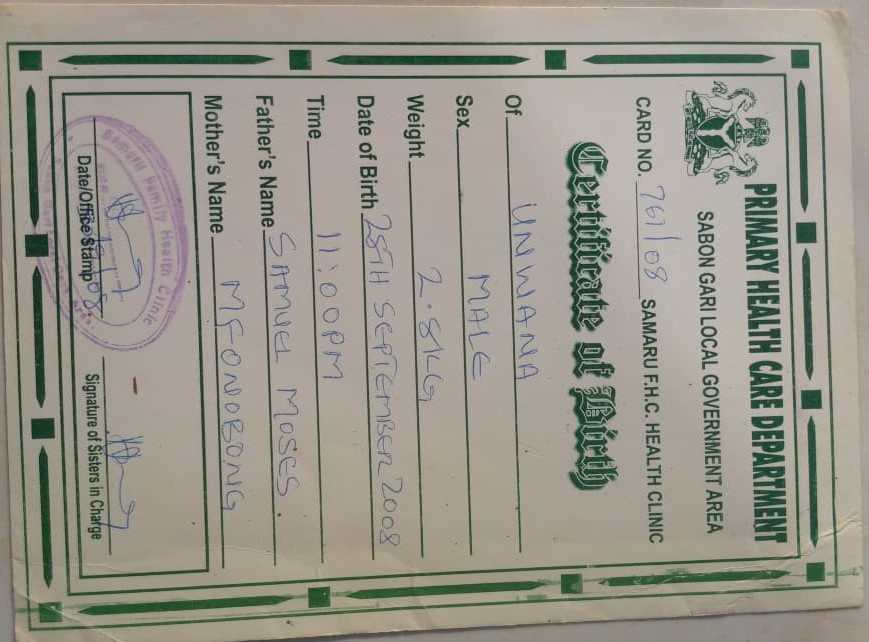 PRIMARY HEALTH CARE DEPARTMENT
SABON GARI LOCAL GOVERNMENT AREA
CARD NO. 767/08 SAMARU F.H.C. HEALTH CLINIC
Certificate of Birth
Of UNWANA
Sex MALE
Weight 2.8KG
Date of Birth 28TH SEPTEMBER 2008
Time 11:00PM
Father's Name SAMUEL MOSES.
Mother's Name MFONOBONG
Samaru Family Health Clinic
Date/Office Stamp
Signature of Sisters in Charge